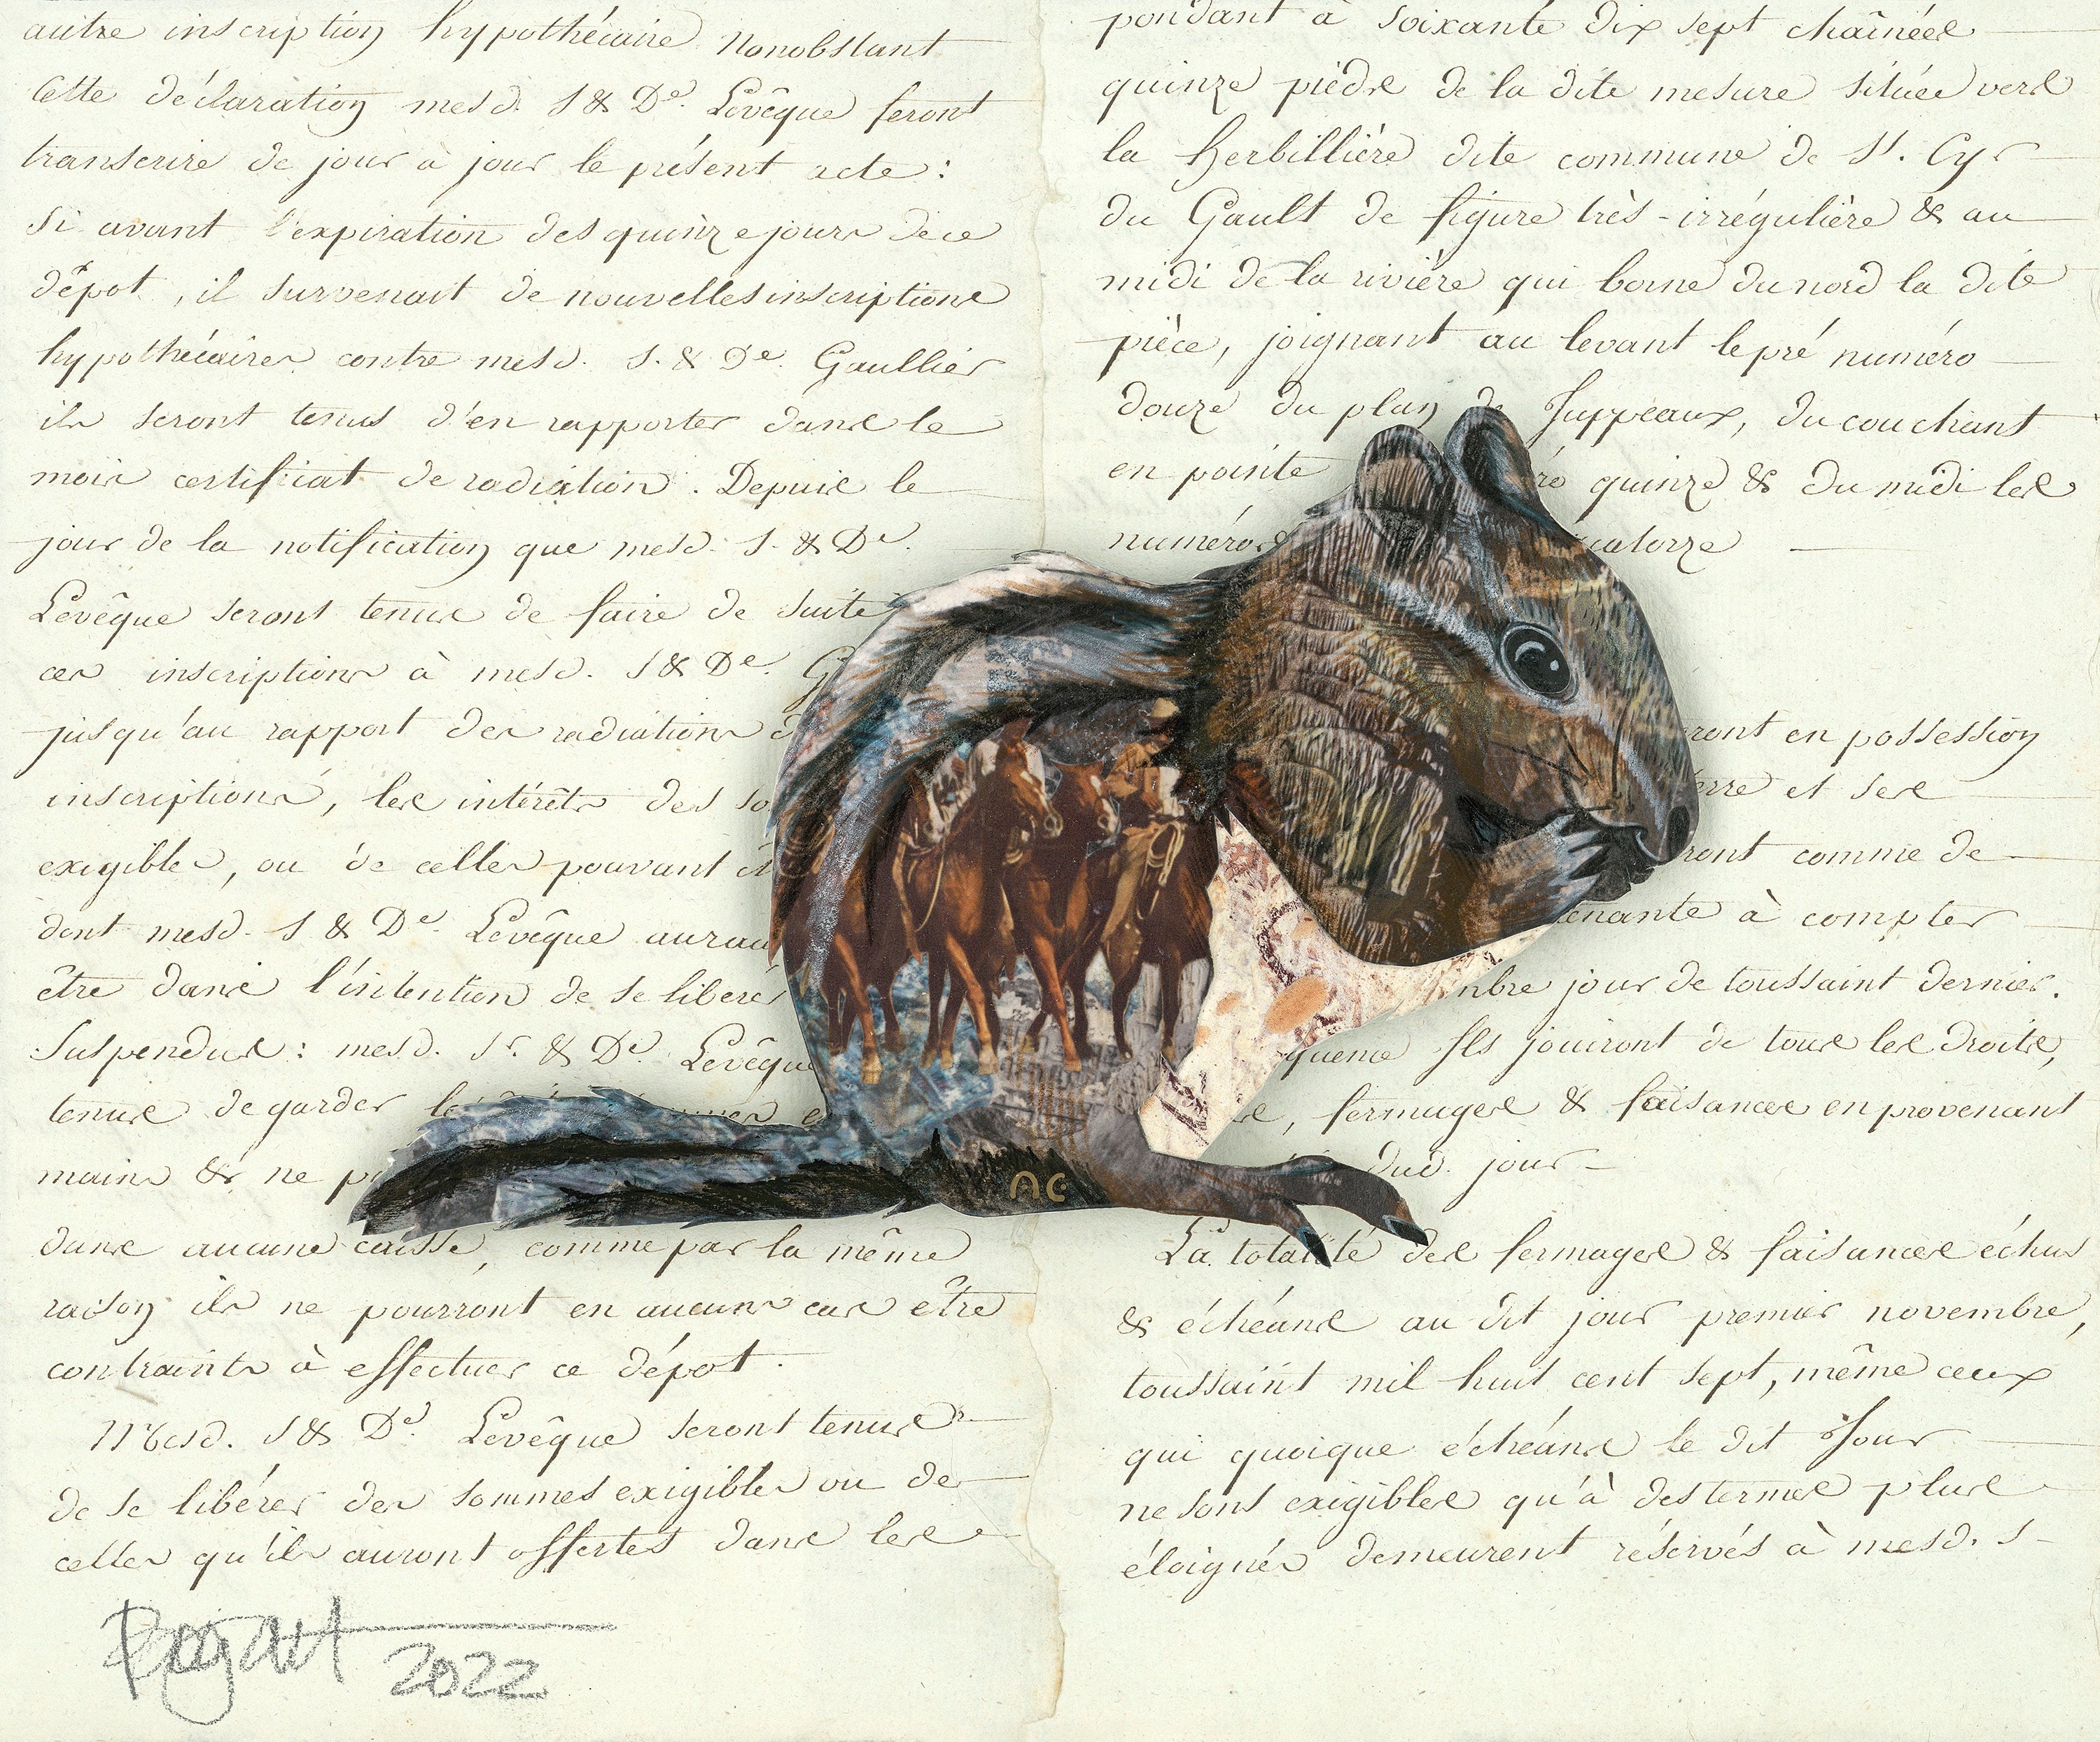 autre inscription hypothécaire. Nonobstant
Cette déclaration mesd. S & De. Levêque feront
transcrire de jour à jour le présent acte :
Si avant l'expiration des quinze jours de ce
dépot, il survenait de nouvelles inscriptions
hypothécaires contre mesd. S. & De. Gaullier
ils seront tenus d'en rapporter dans le
mois certificat de radiation. Depuis le
jour de la notification que mesd. S. & De.
Levêque seront tenus de faire de suite
ces inscriptions à mesd. S & De. G
jusqu'au rapport des radiations d
inscriptions, les intérêts des so
exigibles, ou de celles pouvant êt
dont mesd. S & De. Levêque aurai
être dans l'intention de se libérer
Suspendus : mesd. Sr. & De. Levêque
tenus de garder les
mains & ne p
dans aucune caisse, comme par la même
raison ils ne pourront en aucuns cas être
contraints à effectuer ce dépot.
Mesd. S & De. Levêque seront tenus
de se libérer des sommes exigibles ou de
celles qu'ils auront offertes dans les
pondant à soixante dix sept chaînées
quinze pieds de la dite mesure située vers
la Herbillière dite commune de St. Cyr
du Gault de figure très-irrégulière & au
midi de la rivière qui borne du nord la dite
pièce, joignant au levant le pré numéro
douze du plan de Juppeaux, du couchant
en pointe ré quinze & du midi les
numéros atorze
ront en possession
erre et ses
ront comme de
enante à compter
mbre jour de toussaint dernier.
quence Ils jouiront de tous les droits,
fermages & faisances en provenant
dud. jour
La totalité des fermages & faisances échus
& échéans au dit jour premier novembre,
toussaint mil huit cent sept, même ceux
qui quoique échéans le dit Jour
ne sont exigibles qu'à des termes plus
éloignés demeurent réservés à mesd. S
AC
2022